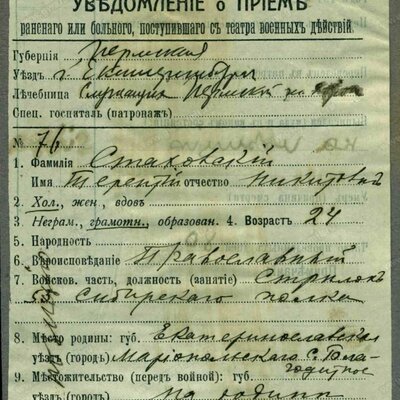 УВѢДОМЛЕНІЕ о ПРІЕМѢ
раненаго или больного, поступившаго съ театра военныхъ дѣйствій.
Губернія Пермская
Уѣздъ г. Екатеринбург
Лѣчебница служащих Пермской жел
Спец. госпиталь (патронаж)
№ 76
1. Фамилія Стаховскій
Имя Терентій отчество Никитовъ
2. Хол., жен., вдовъ
3. Неграм., грамотн., образован. 4. Возрастъ 24
5. Народность
6. Вѣроисповѣданіе Православный
7. Войсков. часть, должность (занятіе) Стрѣлок
5 Сибирскаго полка
8. Мѣсто родины: губ. Екатеринославская
уѣздъ (городъ) Маріопольскаго с. Благо
датное
9. Мѣстожительство (передъ войной): губ.
уѣздъ (городъ) на родинѣ